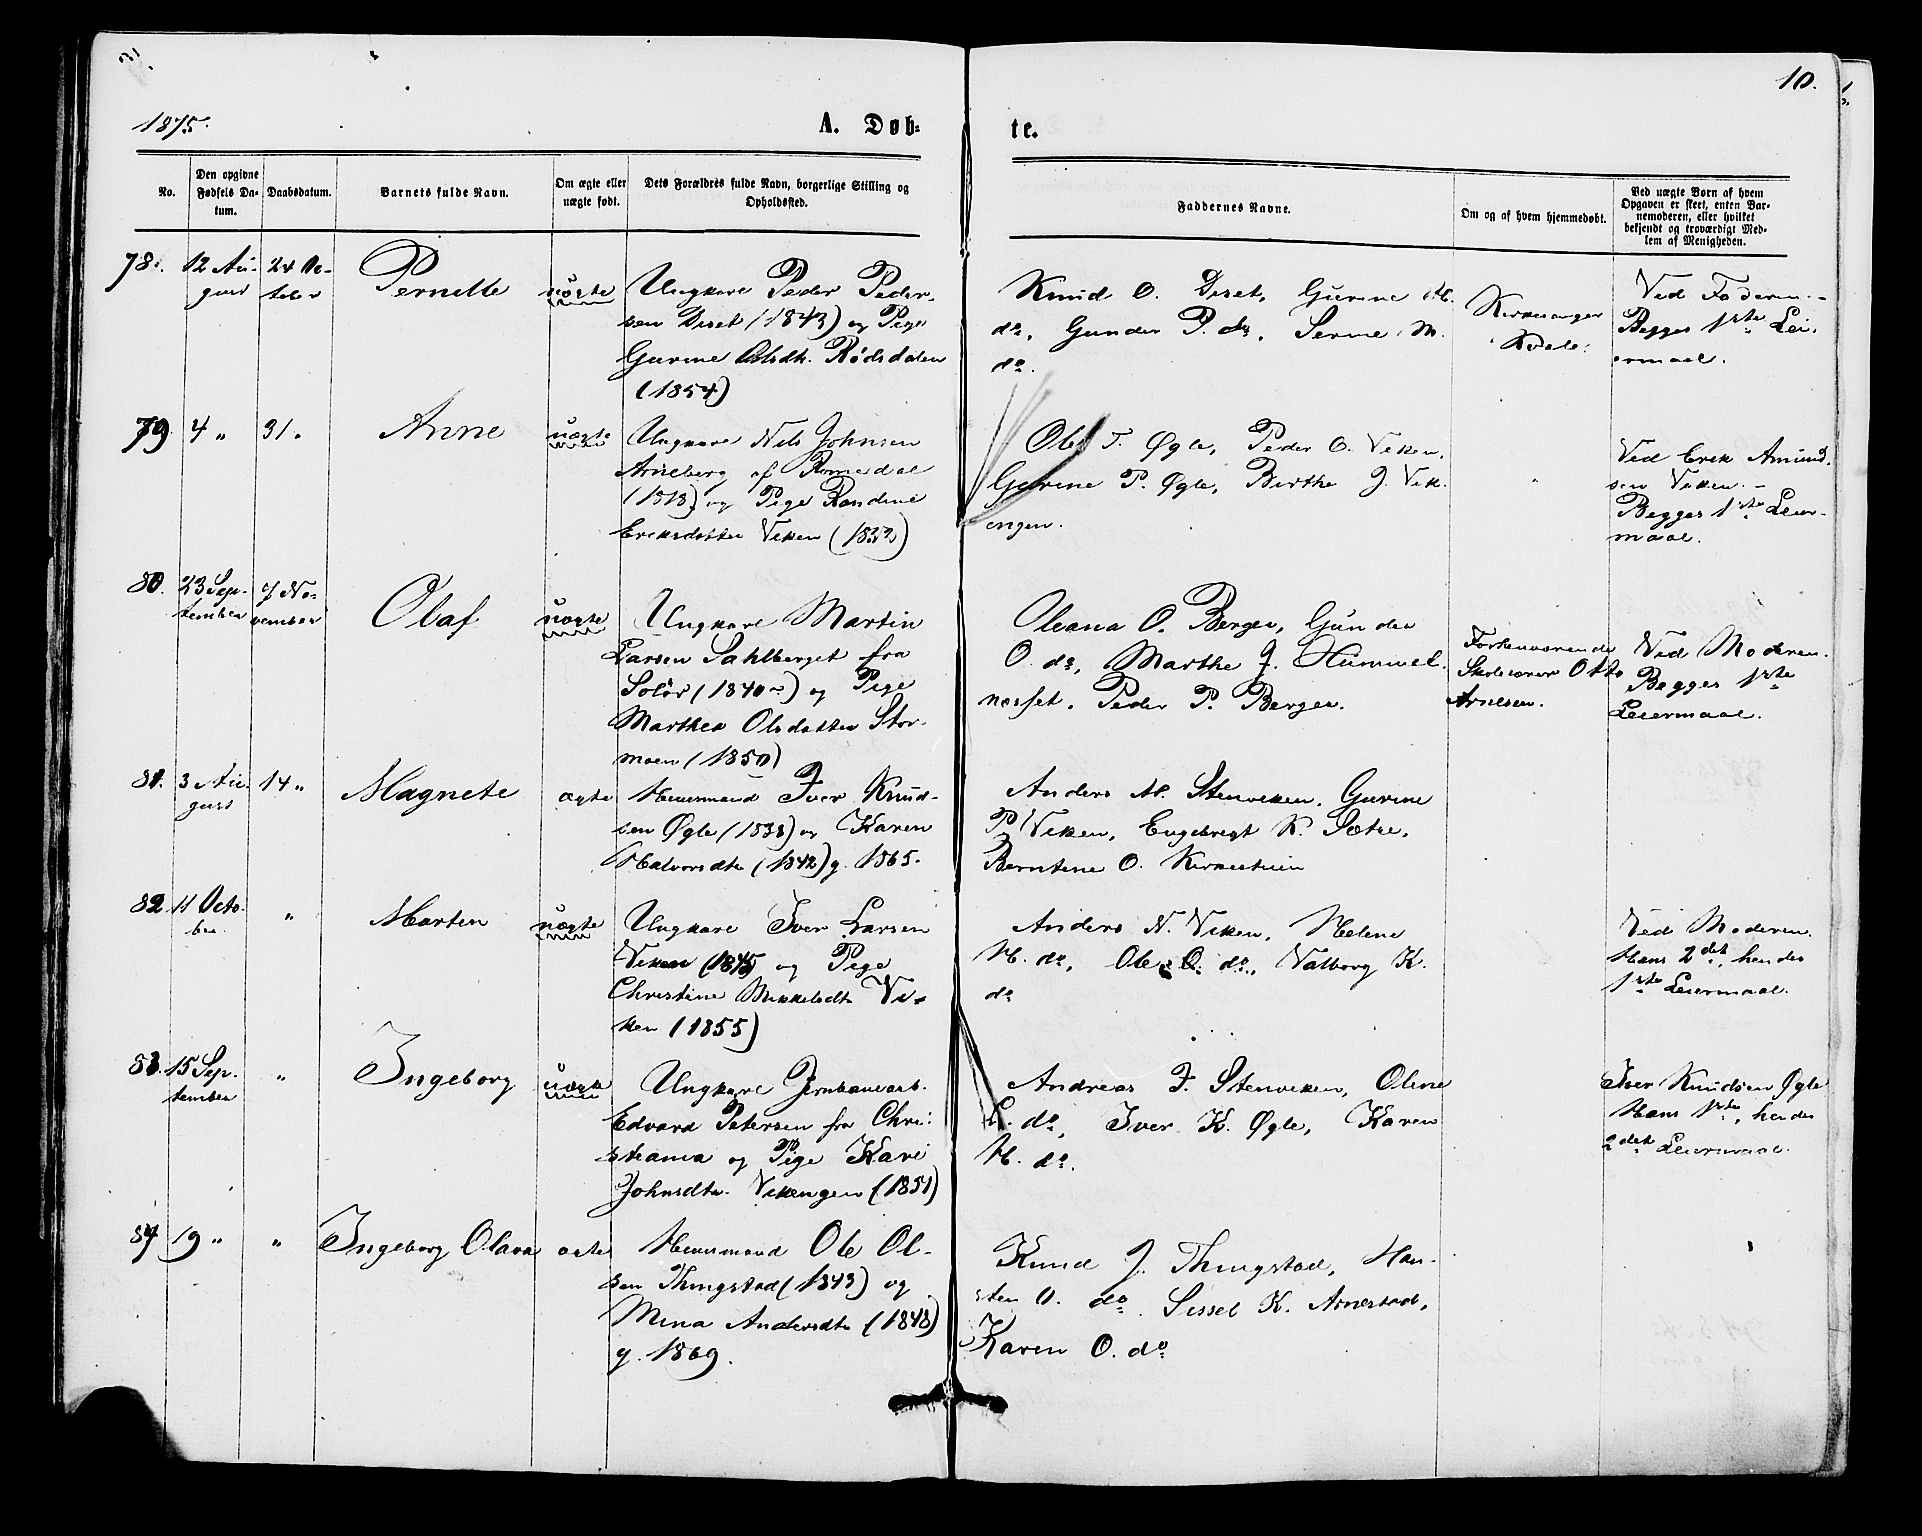 10.
1875.
A. Døb-
te.
No.
Den opgivne
Fødsels Da-
tum.
Daabsdatum.
Barnets fulde Navn.
Om ægte eller
uægte født.
Dets Forældres fulde Navn, borgerlige Stilling og
Opholdssted.
Faddernes Navne.
Om og af hvem hjemmedøbt.
Ved uægte Børn af hvem
Opgaven er skeet, enten Bar-
nemoderen, eller hvilket
bekjendt og troværdigt Med-
lem af Menigheden.
78.
12 Au-
gust
24 Oc-
tober
Pernelle
uægte
Ungkarl Peder Peder-
sen Diset (1843) og Pige
Gurine Olsdtr. Rødsdalen
(1854)
Knud O. Diset, Gurine H.
do, Gunder P. do, Serine M.
do.
Kirkesanger
Ved Faderen. -
Begges 1ste Lei-
ermaal.
79
4 "
31 "
Anne
uægte
Ungkarl Nils Johnsen
Arneberg af Romedal
(1818) og Pige Randine
Eriksdatter Viken
Ole T. Øgle, Peder O. Viken,
Gurine P. Øgle, Birthe J. Vik-
engen.
"
Ved Erik Amund-
sen Viken. -
Begges 1ste Leier-
maal.
80.
23 Sep-
tember
7 No-
vember
Olaf
uægte
Ungkarl Martin
Larsen Sahlberget fra
Solør (1840) og Pige
Marthea Olsdatter Stor-
moen (1850)
Oleana O. Berger, Gunder
O. do, Marthe J. Hummel-
næsset, Peder P. Berger.
Forhenværende
Skolelærer Otto
Arnesen.
Ved Moderen.
Begges 1ste
Leiermaal.
81.
3 Au-
gust
14 "
Magnete
ægte
Huusmand Iver Knud-
sen Øgle (1838) og Karen
Halvorsdtr (1842) g. 1865.
Anders M. Stenviken, Gurine
P. Viken, Engebregt K. Sætre,
Berntine O. Kirkestuen
82.
11 Octo-
ber
"
Marten
uægte
Ungkarl Iver Larsen
Viken (1845) og Pige
Christine Mikkelsdtr Vi-
ken (1855)
Anders N. Viken, Helene
H. do, Ole O. do, Valborg K.
do
Ved Moderen.
Hans 2det, hendes
1ste Leiermaal.
83.
15 Sep-
tember
"
Ingeborg
uægte
Ungkarl Jernbanearb.
Edvard Petersen fra Chri-
stiania og Pige Kari
Johnsdtr. Vikengen (1851)
Andreas F. Stenviken, Oline
L. do, Iver K. Øgle, Karen
H. do.
Iver Knudsen Øgle
Hans 1ste, hendes
2det Leiermaal.
84
19 "
"
Ingeborg Olava
ægte
Huusmand Ole Ol-
sen Thingstad (1843) og
Mina Andersdtr (1848)
g. 1869.
Knud J. Thingstad, Han-
sten O. do. Sissel K. Arnestad,
Karen O. do